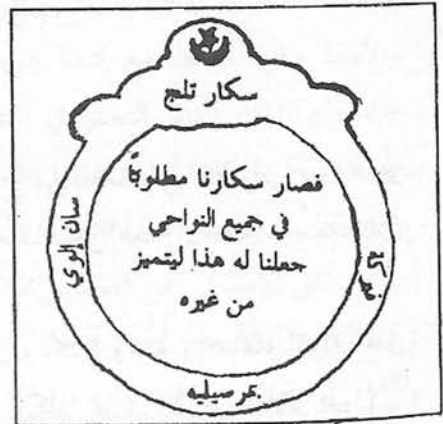 سكار تلج
فصار سكارنا مطلوبًا
في جميع النواحي
جعلنا له هذا ليتميز
من غيره
سان لوي
بمرسيليه